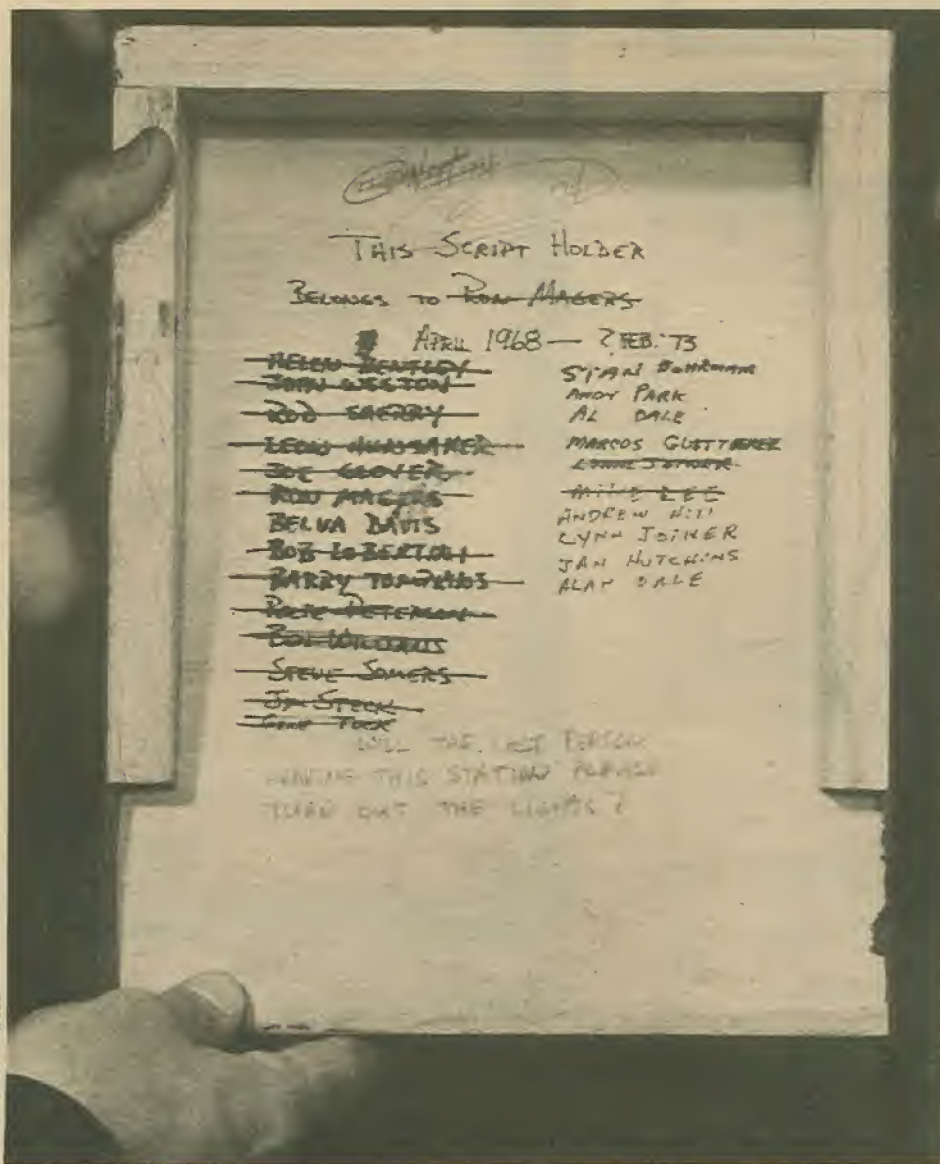 THIS SCRIPT HOLDER
BELONGS TO RON MAGERS
APRIL 1968 — ? FEB. '73
HELEN BENTLEY
JOHN WESTON
ROD SHERRY
LEON
JOE GLOVER
RON MAGERS
BELVA DAVIS
BOB
BARRY TOMPKINS
PETE PETERSON
BOB WILLIAMS
STEVE SOMERS
STECK
GENE TUCK
STAN BOHRMAN
ANDY PARK
AL DALE
MARCOS
MIKE LEE
ANDREW HILL
LYNN JOINER
JAN HUTCHINS
ALAN DALE
WILL THE LAST PERSON
LEAVING THIS STATION PLEASE
TURN OUT THE LIGHTS?